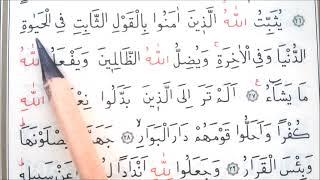 يُثَبِّتُ اللّٰهُ الَّذِينَ اٰمَنُوا بِالْقَوْلِ الثَّابِتِ فِي الْحَيٰوةِ
الدُّنْيَا وَفِي الْاٰخِرَةِ وَيُضِلُّ اللّٰهُ الظَّالِمِينَ وَيَفْعَلُ اللّٰهُ
مَا يَشَاءُ ٢٧ اَلَمْ تَرَ اِلَى الَّذِينَ بَدَّلُوا اللّٰهِ
كُفْرًا وَاَحَلُّوا قَوْمَهُمْ دَارَ الْبَوَارِ ٢٨ يَصْلَوْنَهَا
وَبِئْسَ الْقَرَارُ ٢٩ وَجَعَلُوا لِلّٰهِ اَنْدَادًا